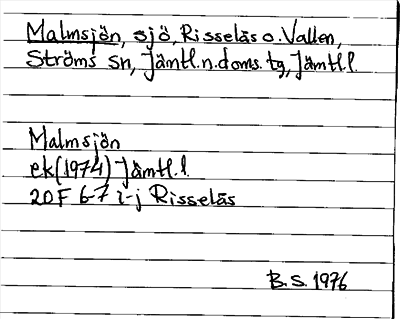 Malmsjön, sjö, Risselås o. Vallen,
Ströms sn, Jämtl.n.doms.tg, Jämtl.l.
Malmsjön
ek (1974) Jämtl.l.
20F 6-7 i-j Risselås
B.S. 1976